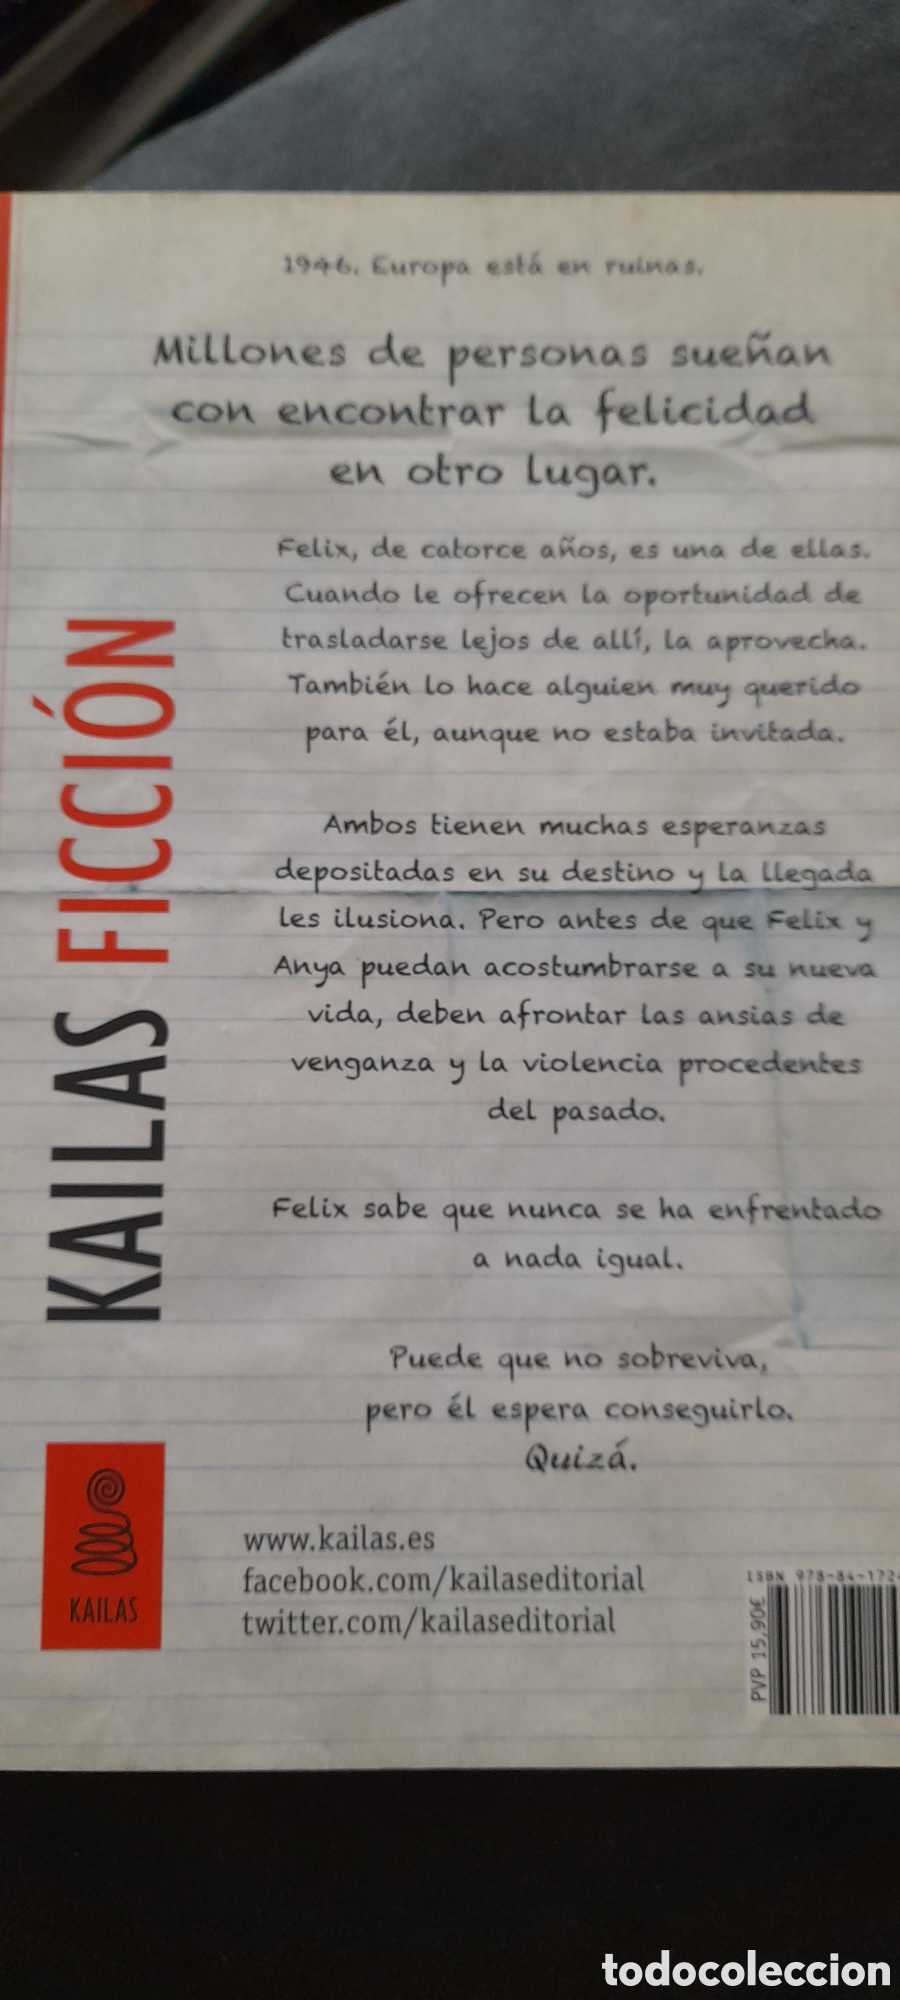 1946. Europa está en ruinas.
Millones de personas sueñan
con encontrar la felicidad
en otro lugar.
Felix, de catorce años, es una de ellas.
Cuando le ofrecen la oportunidad de
trasladarse lejos de allí, la aprovecha.
También lo hace alguien muy querido
para él, aunque no estaba invitada.
Ambos tienen muchas esperanzas
depositadas en su destino y la llegada
les ilusiona. Pero antes de que Felix y
Anya puedan acostumbrarse a su nueva
vida, deben afrontar las ansias de
venganza y la violencia procedentes
del pasado.
Felix sabe que nunca se ha enfrentado
a nada igual.
Puede que no sobreviva,
pero él espera conseguirlo.
Quizá.
KAILAS FICCIÓN
KAILAS
www.kailas.es
facebook.com/kailaseditorial
twitter.com/kailaseditorial
ISBN 978-84-172
PVP 15,90€
todocoleccion